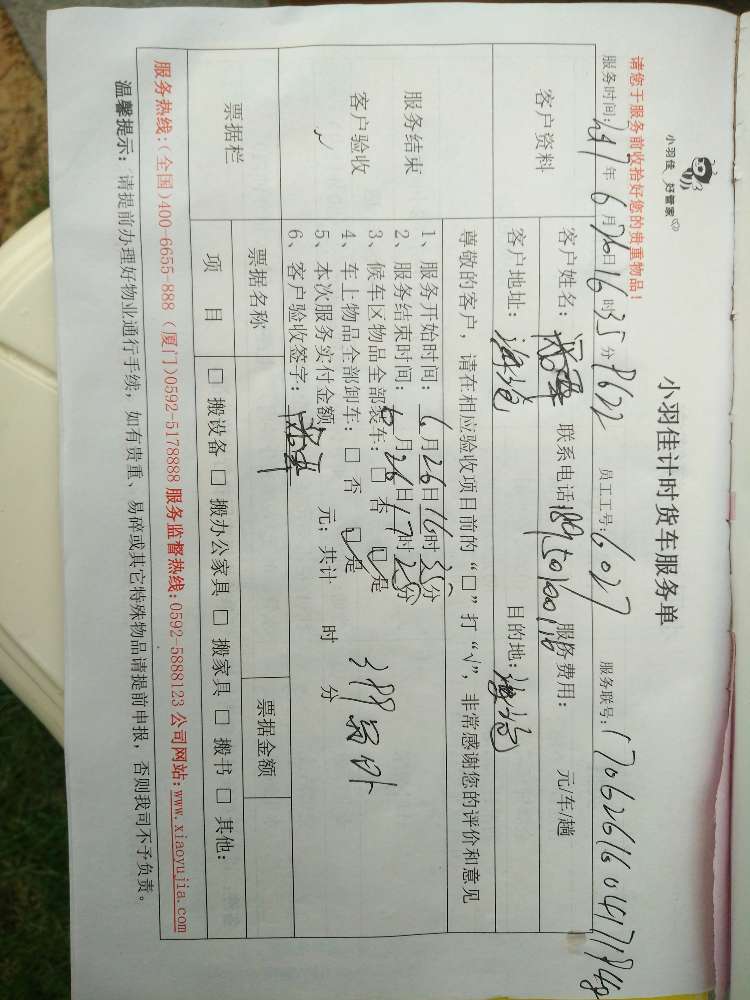 小羽佳 好管家
小羽佳计时货车服务单
请您于服务前收拾好您的贵重物品！
服务时间: 年 6 月 26 日 16 时 35 分 员工工号: 6027 服务联号: 170626160417184
客户资料
客户姓名： 联系电话 服务费用： 元/车/趟
客户地址： 目的地：
尊敬的客户，请在相应验收项目前的“□”打“√”，非常感谢您的评价和意见
服务结束
客户验收
1、服务开始时间： 6 月 26 日 16 时 35 分
2、服务结束时间： 6 月 26 日 17 时 25 分
3、候车区物品全部装车：□ 否 □ 是
4、车上物品全部卸车：□ 否 □ 是
5、本次服务实付金额 元；共计 时 分
6、客户验收签字：
票据栏 票据名称 票据金额
项 目 □ 搬设备 □ 搬办公家具 □ 搬家具 □ 搬书 □ 其他：
服务热线:(全国)400-6655-888 (厦门)0592-5178888 服务监督热线:0592-5888123 公司网站:www.xiaoyujia.com
温馨提示：请提前办理好物业通行手续，如有贵重、易碎或其它特殊物品请提前申报，否则我司不予负责。